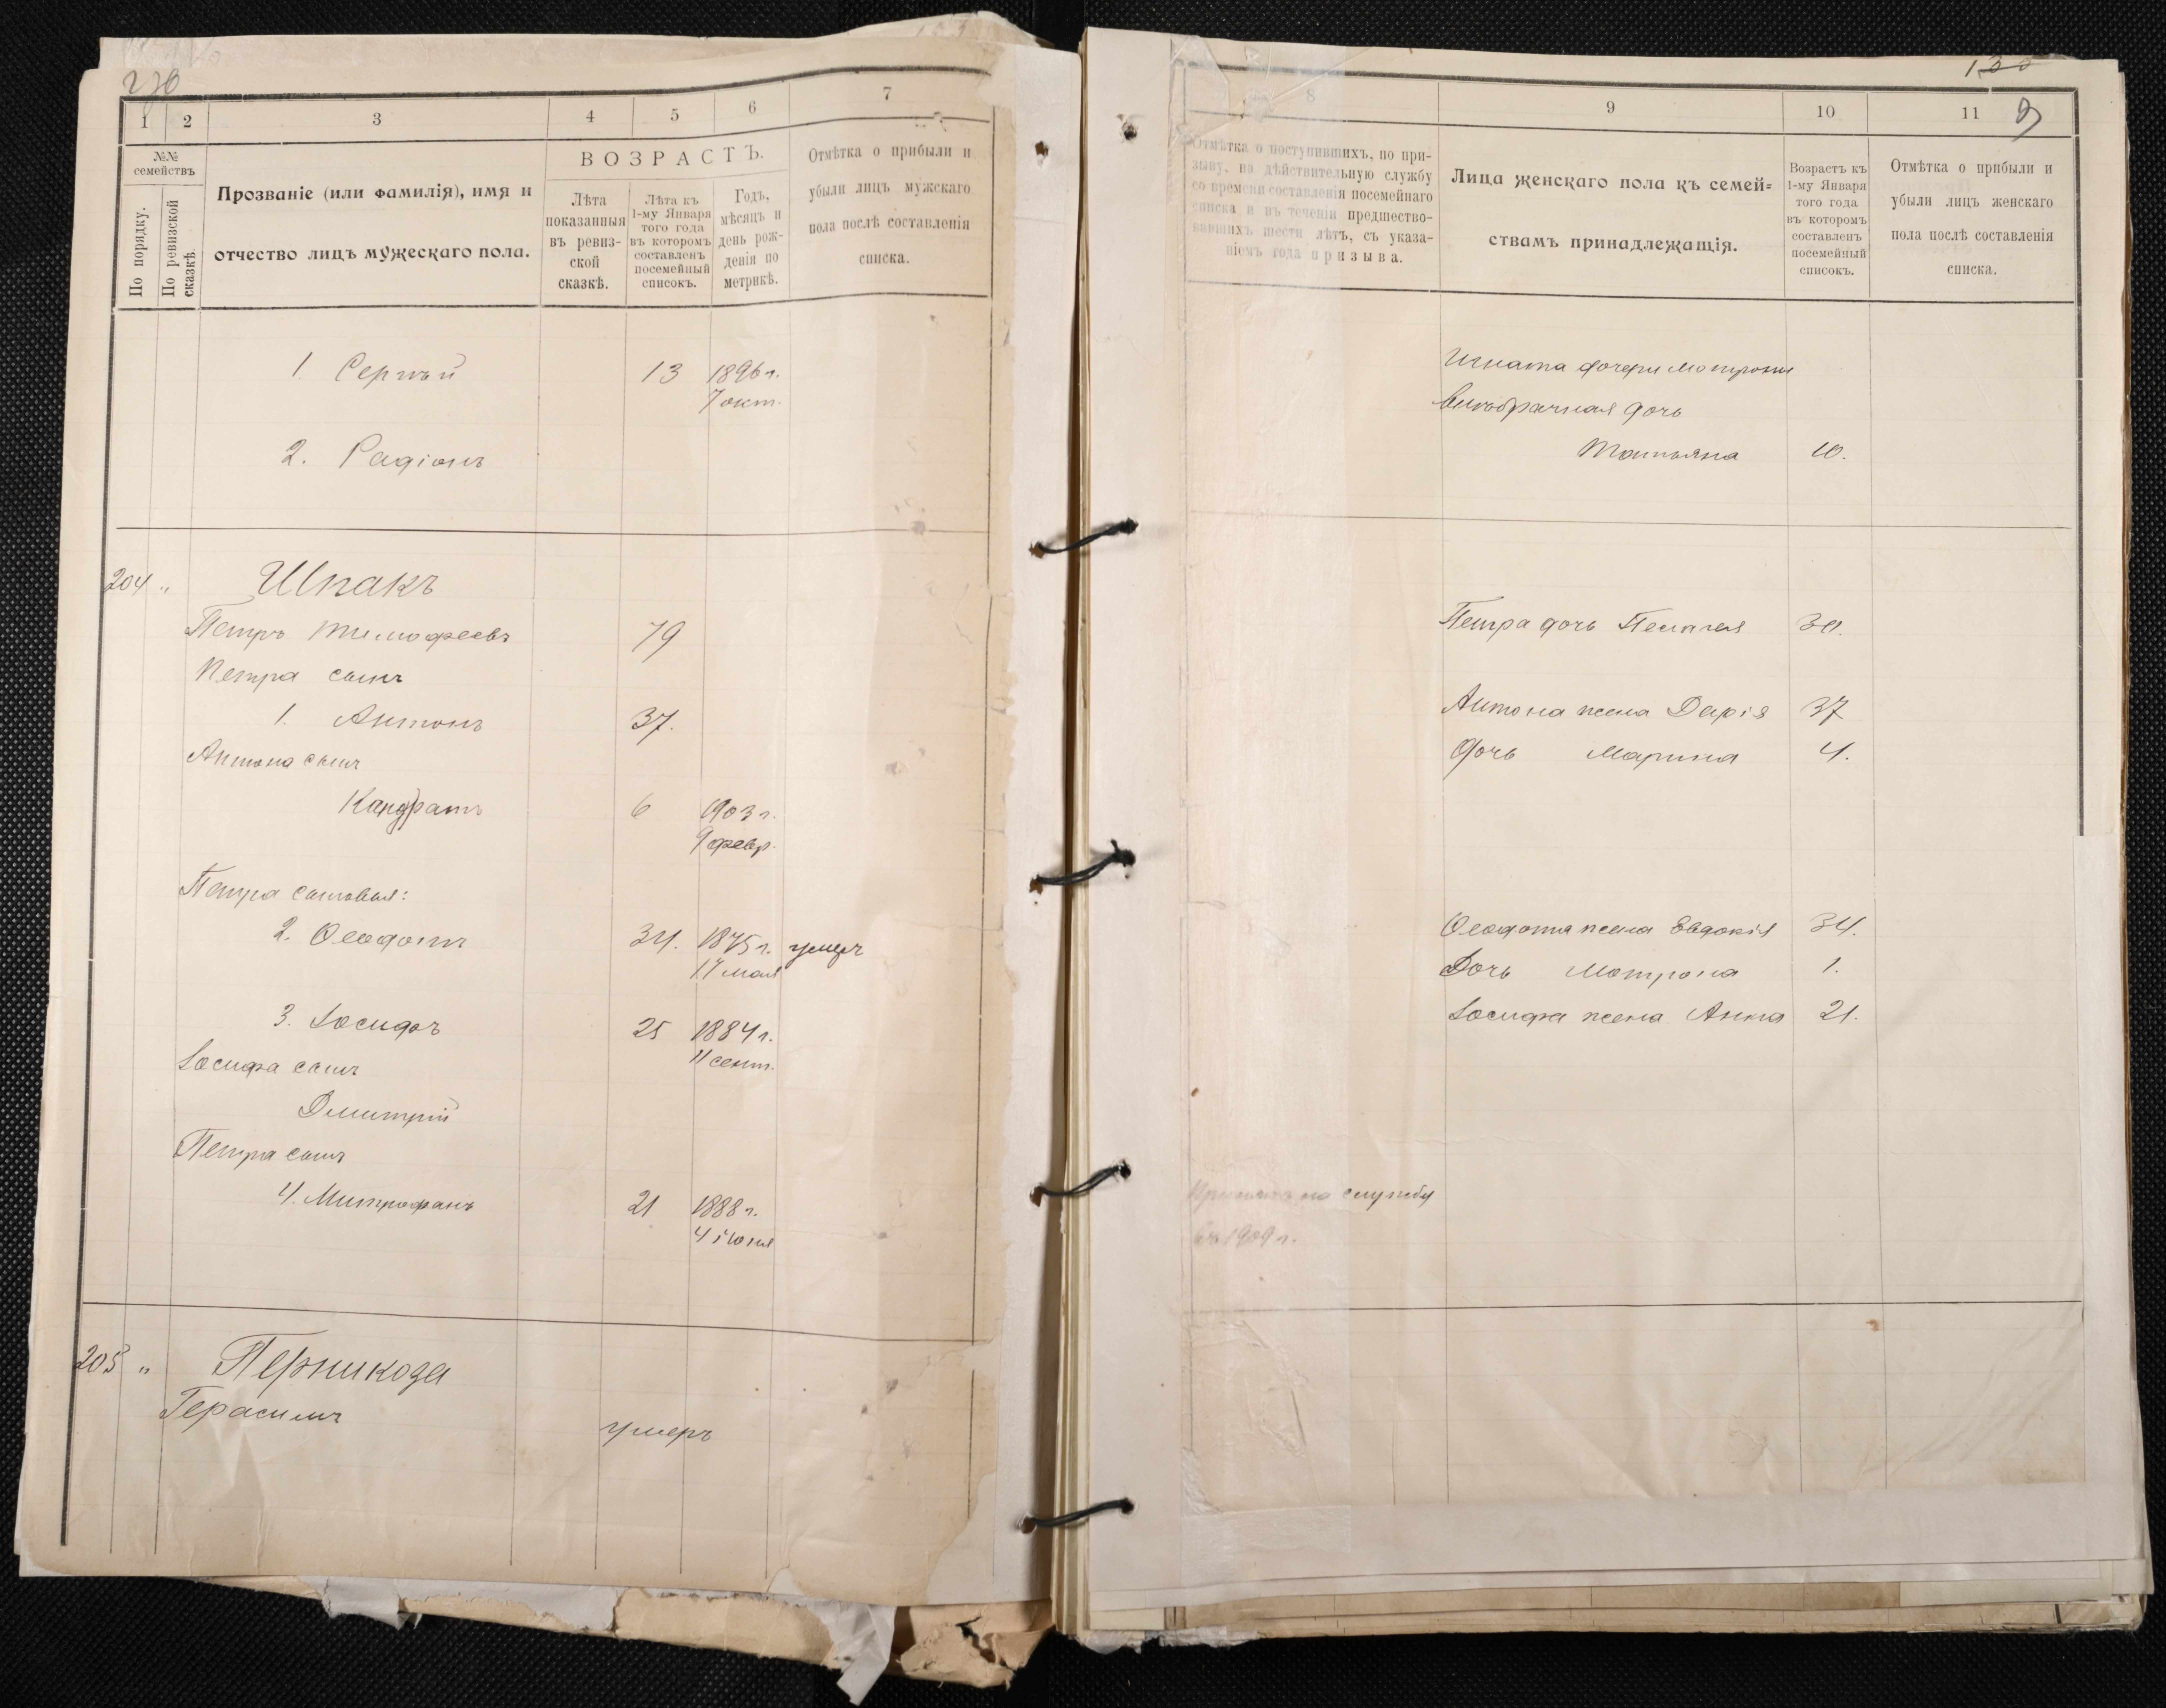 1 2 3 4 5 6 7
№№ семействъ
По порядку.
По ревизской сказкѣ.
Прозваніе (или фамилія), имя и
отчество лицъ мужескаго пола.
ВОЗРАСТЪ.
Лѣта
показанныя
въ ревиз-
ской
сказкѣ.
Лѣта къ
1-му Января
того года
въ которомъ
составленъ
посемейный
списокъ.
Годъ,
мѣсяцъ и
день рож-
денія по
метрикѣ.
Отмѣтка о прибыли и
убыли лицъ мужскаго
пола послѣ составленія
списка.
1 Сергѣй 13 1896 г.
7 окт.
2. Радіонъ
204 " Шпакъ
Петръ Тимофеевъ 79
Петра сынъ
1. Антонъ 37.
Антона сынъ
Кандратъ 6 1903 г.
9 февр.
Петра сыновья:
2. Ѳеодотъ 34. 1875 г. умеръ
17 мая
3. Іосифъ 25 1884 г.
11 сент.
Іосифа сынъ
Дмитрій
Петра сынъ
4. Митрофанъ 21 1888 г.
4 іюня
205 " Перникоза
Герасимъ умеръ
8 9 10 11
Отмѣтка о поступившихъ, по при-
зыву, на дѣйствительную службу
со времени составленія посемейнаго
списка и въ теченіи предшество-
вавшихъ шести лѣтъ, съ указа-
ніемъ года призыва.
Лица женскаго пола къ семей-
ствамъ принадлежащія.
Возрастъ къ
1-му Января
того года
въ которомъ
составленъ
посемейный
списокъ.
Отмѣтка о прибыли и
убыли лицъ женскаго
пола послѣ составленія
списка.
Игната дочери Мотроны
внѣбрачная дочь
Татьяна 10.
Петра дочь Пелагея 30.
Антона жена Дарія 37
Дочь Марина 4.
Ѳеодота жена Евдокія 34.
Дочь Мотрона 1.
Іосифа жена Анна 21.
Принятъ на службу
въ 1909 г.